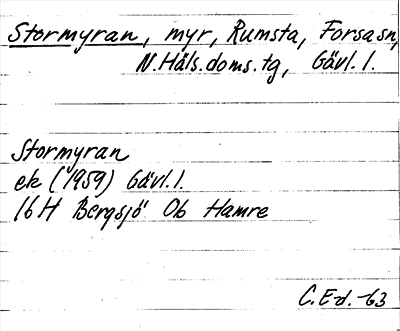 Stormyran, myr, Rumsta, Forsasn,
N.Häls.doms.tg, Gävl.l.
Stormyran
ek (1959) Gävl.l.
16H Bergsjö Ob Hamre
C.Ed. -63